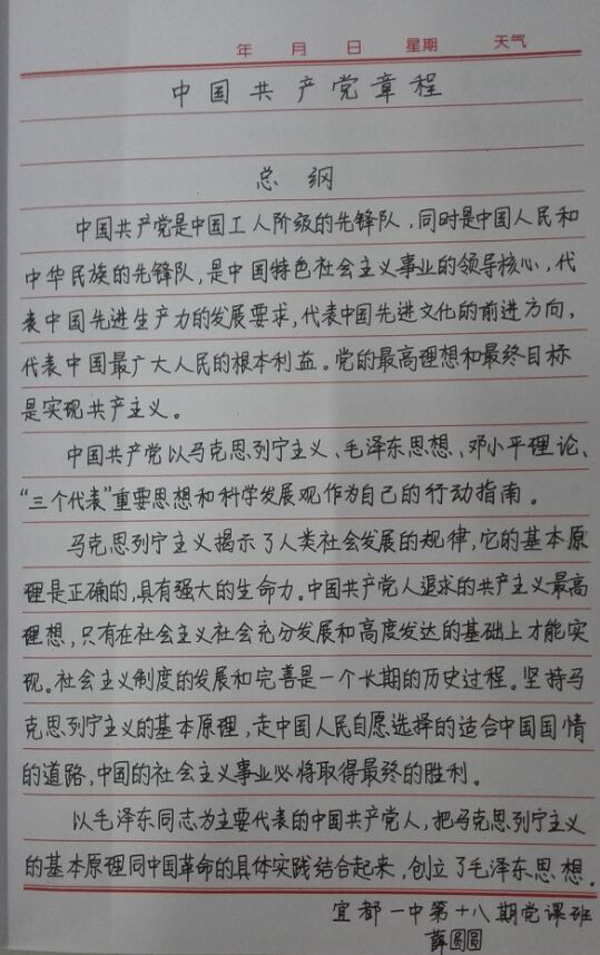 年 月 日 星期 天气
中国共产党章程
总纲
中国共产党是中国工人阶级的先锋队，同时是中国人民和
中华民族的先锋队，是中国特色社会主义事业的领导核心，代
表中国先进生产力的发展要求，代表中国先进文化的前进方向，
代表中国最广大人民的根本利益。党的最高理想和最终目标
是实现共产主义。
中国共产党以马克思列宁主义、毛泽东思想、邓小平理论、
“三个代表”重要思想和科学发展观作为自己的行动指南。
马克思列宁主义揭示了人类社会发展的规律，它的基本原
理是正确的，具有强大的生命力。中国共产党人追求的共产主义最高
理想，只有在社会主义社会充分发展和高度发达的基础上才能实
现。社会主义制度的发展和完善是一个长期的历史过程。坚持马
克思列宁主义的基本原理，走中国人民自愿选择的适合中国国情
的道路，中国的社会主义事业必将取得最终的胜利。
以毛泽东同志为主要代表的中国共产党人，把马克思列宁主义
的基本原理同中国革命的具体实践结合起来，创立了毛泽东思想.
宜都一中第十八期党课班
薛圆圆